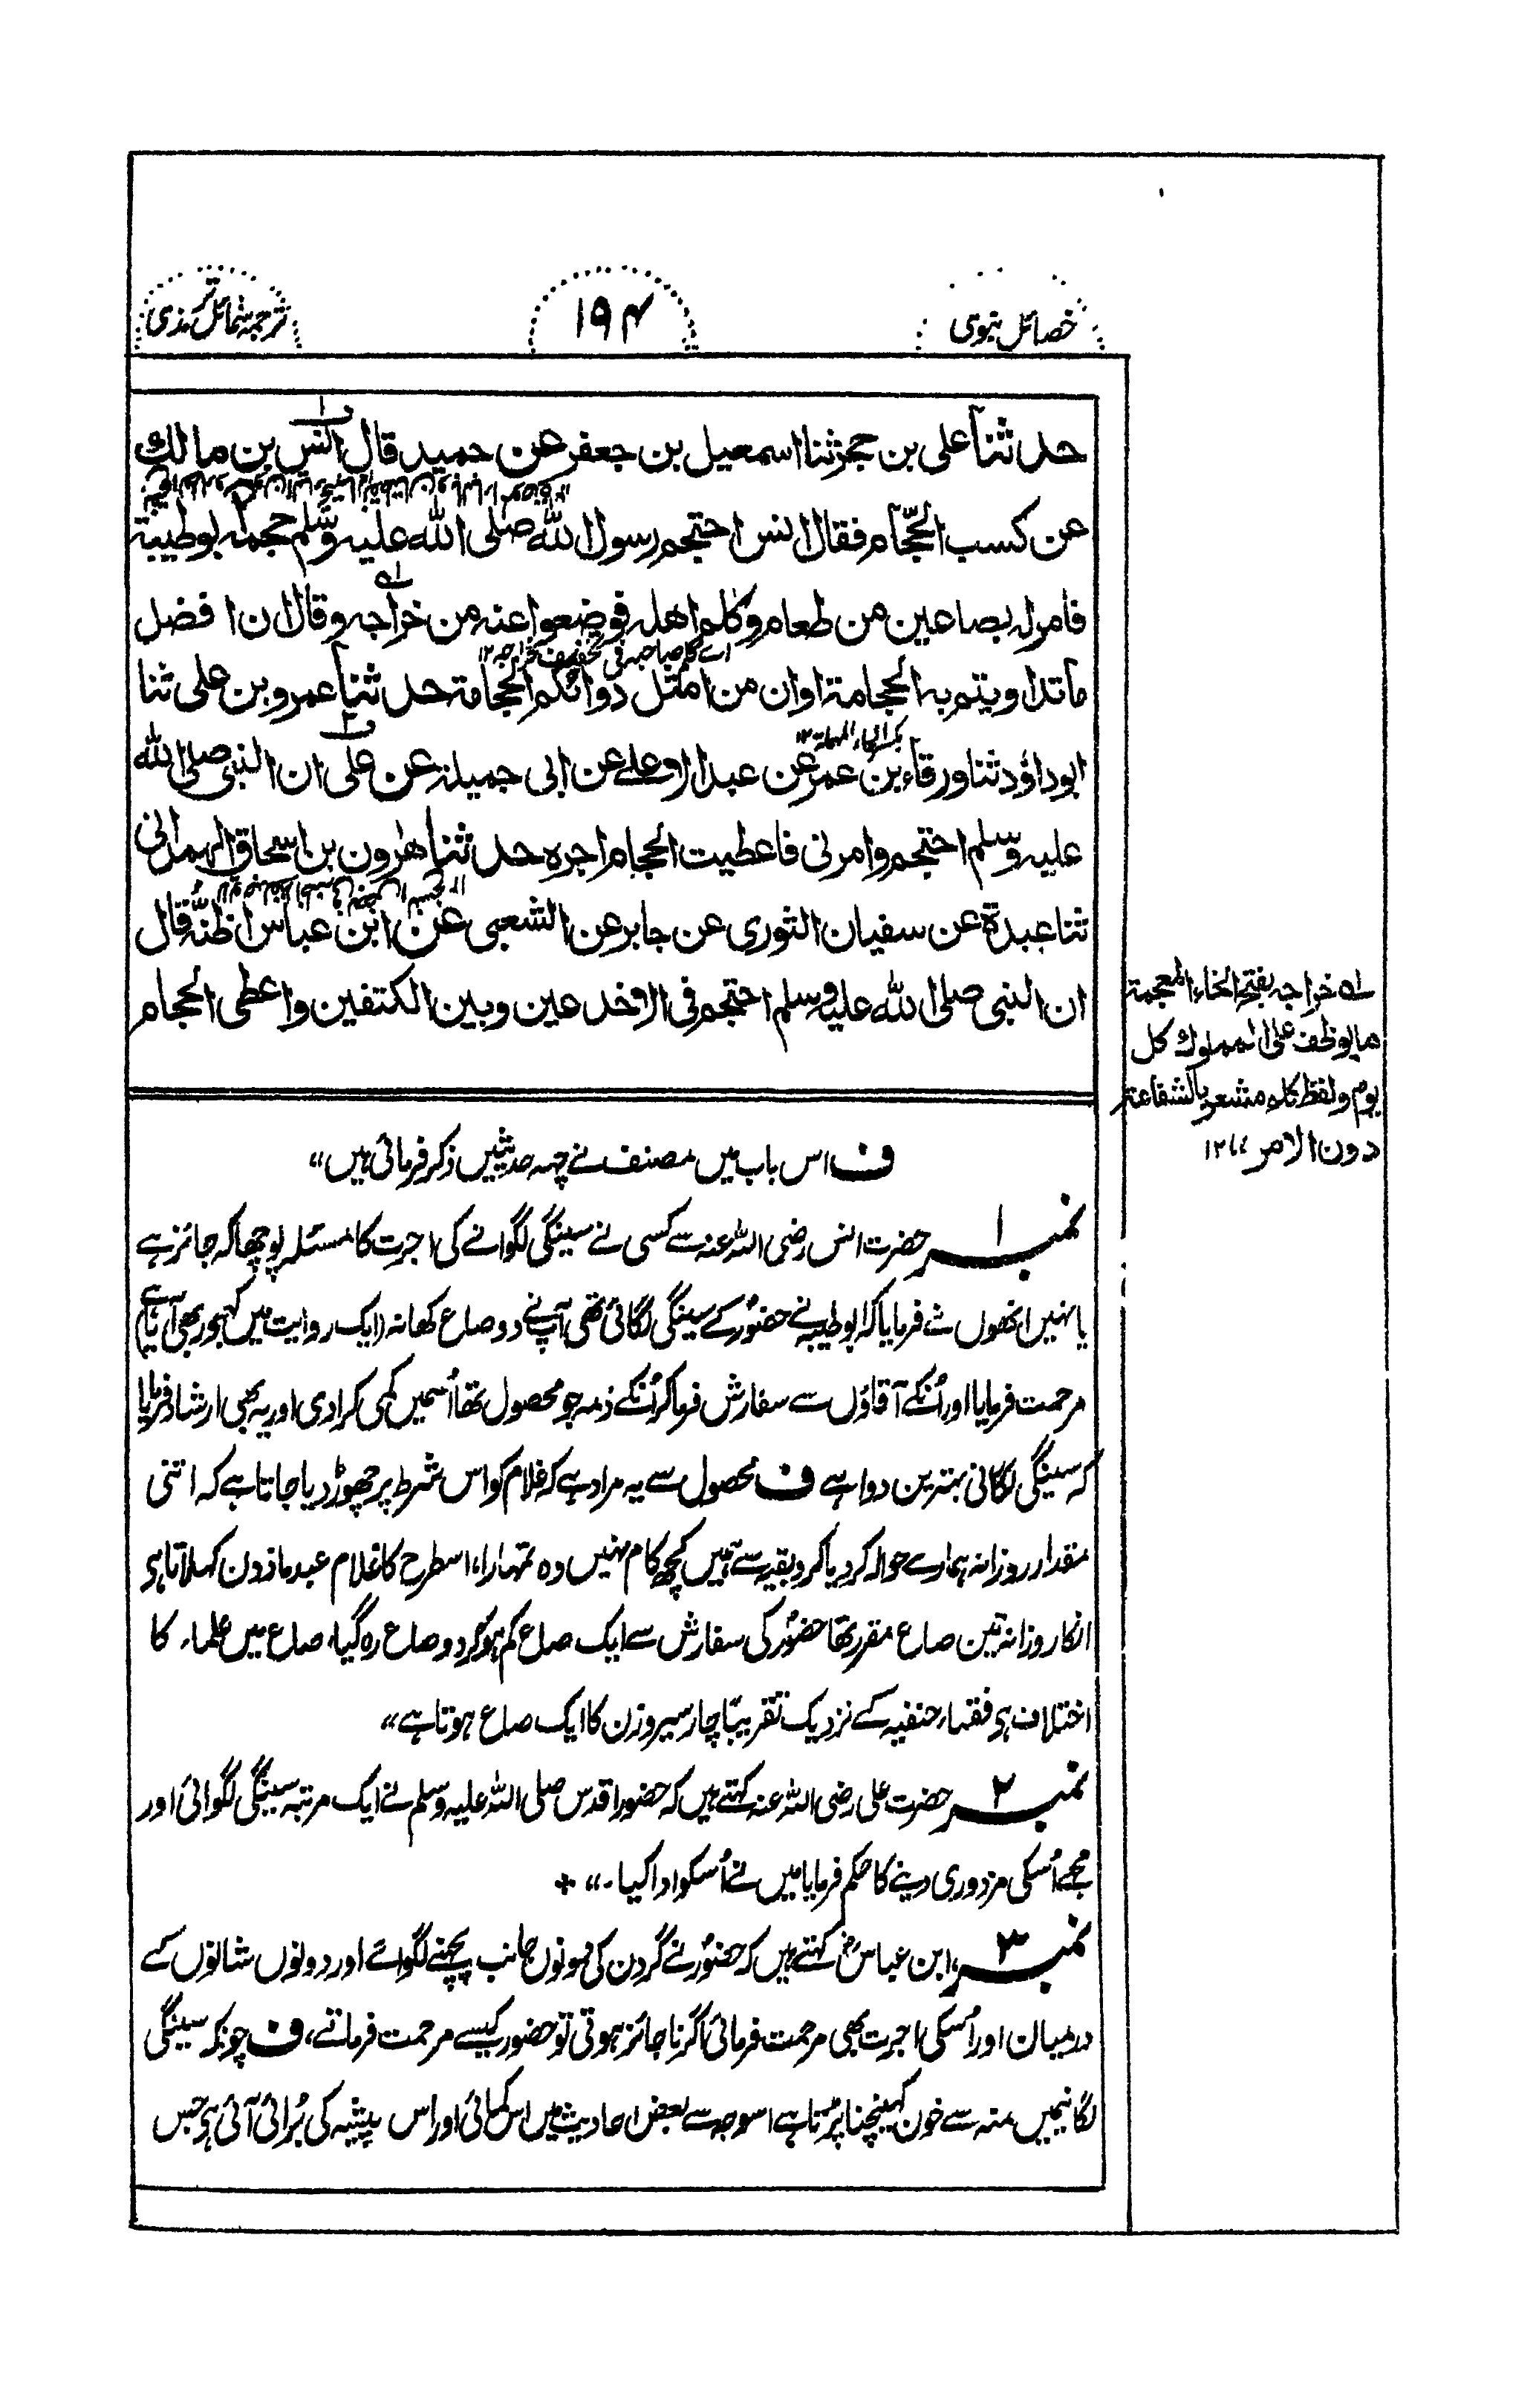 خصائل نبوی
۱۹۴
ترجمہ شمائل ترمذی
حدثنا علی بن حجر ثنا اسمعیل بن جعفر عن حمید قال انس بن مالک
عن کسب الحجام فقال انس احتجم رسول الله صلی الله علیه وسلم حجمه ابوطیبة
فامرله بصاعین من طعام وکلم اهله فوضعوا عنه من خراجه وقال ان افضل
اے کلم صاحبه فی تخفیف خراجه ۱۲
ما تداویتم به الحجامة اوان من امثل دوائکم الحجامة حدثنا عمرو بن علی ثنا
بکسر الحاء المهملة ۱۲
ابوداؤد ثنا ورقاء بن عمر عن عبد الاعلے عن ابی جمیلة عن علی ان النبی صلی الله
علیه وسلم احتجم وامرنی فاعطیت الحجام اجره حدثنا هٰرون بن اسحاق الهمدانی
ثنا عبدة عن سفیان الثوری عن جابر عن الشعبی عن ابن عباس اظنه قال
ان النبی صلی الله علیه وسلم احتجم فی الاخدعین وبین الکتفین واعطی الحجام
له خراجه بفتح الخاء المعجمة
ما یوظف علی المملوک کل
یوم ولفظ کلم مشعر بالشفاعة
دون الامر ۱۲
ف اس باب میں مصنف نے چہہ حدیثیں ذکر فرمائی ہیں
نمبر ۱ حضرت انس رضی اللہ عنہ سے کسی نے سینگی لگوانے کی اجرت کا مسئلہ پوچھا کہ جائز ہے
یا نہیں انھوں نے فرمایا کہ ابوطیبہ نے حضورؐ کے سینگی لگائی تھی آپ نے دو صاع کھانہ (ایک روایت میں کھجور بھی آیا ہے)
مرحمت فرمایا اور اُنکے آقاؤں سے سفارش فرما کر اُنکے ذمہ جو محصول تھا اُسمیں کمی کرادی اور یہ بھی ارشاد فرمایا
کہ سینگی لگانی بہترین دوا ہے ف محصول سے یہ مراد ہے کہ غلام کو اس شرط پر چھوڑ دیا جاتا ہے کہ اتنی
مقدار روزانہ ہمارے حوالہ کر دیا کرو بقیہ سے ہمیں کچھ کام نہیں وہ تمہارا، اسطرح کا غلام عبد ماذون کہلاتا ہی
انکا روزانہ تین صاع مقرر تھا حضورؐ کی سفارش سے ایک صاع کم ہو کر دو صاع رہ گیا، صاع میں علماء کا
اختلاف ہی فقہاء حنفیہ کے نزدیک تقریبًا چار سیر وزن کا ایک صاع ہوتا ہے
نمبر ۲ حضرت علی رضی اللہ عنہ کہتے ہیں کہ حضور اقدس صلی اللہ علیہ وسلم نے ایک مرتبہ سینگی لگوائی اور
مجھے اُسکی مزدوری دینے کا حکم فرمایا میں نے اُسکو ادا کیا
نمبر ۳ ابن عباسؓ کہتے ہیں کہ حضورؐ نے گردن کی دونوں جانب پچھنے لگوائے اور دونوں شانوں کے
درمیان اور اُسکی اجرت بھی مرحمت فرمائی اگر ناجائز ہوتی تو حضور کیسے مرحمت فرماتے، ف چونکہ سینگی
لگانیمیں منہ سے خون کھینچنا پڑتا ہے اسوجہ سے بعض احادیث میں اس کمائی اور اس پیشہ کی بُرائی آئی ہی جس